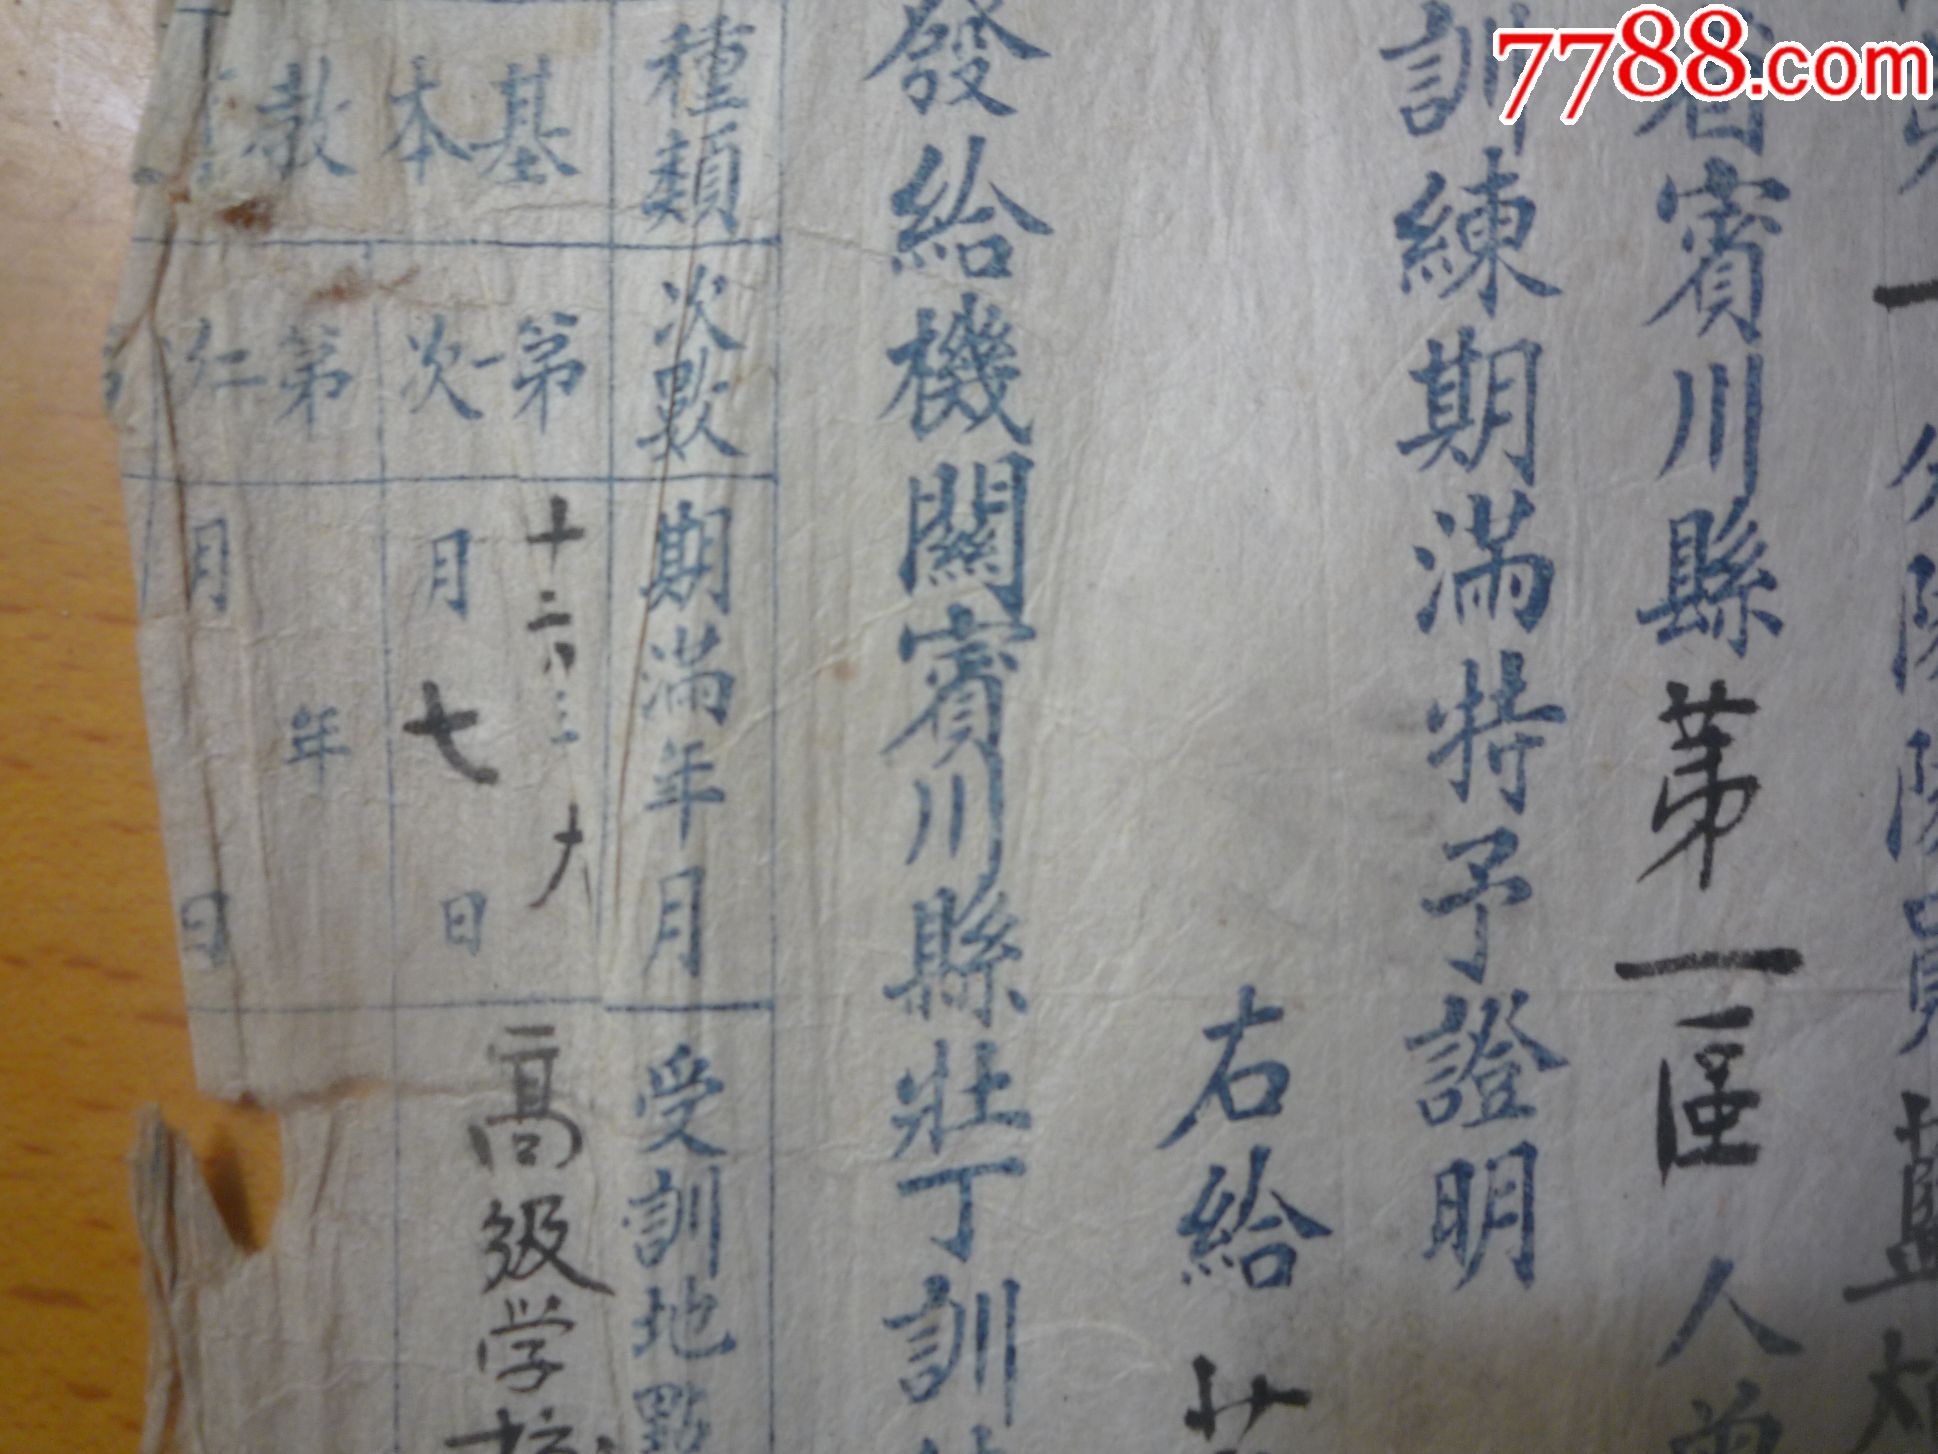 7788.com
一分隊隊員藍
省賓川縣第一區人
訓練期滿特予證明
右給
發給機關賓川縣壯丁訓
種類 次數 期滿年月 受訓地點
基本 第一次 月七日 高級学校
教 第二 年月日